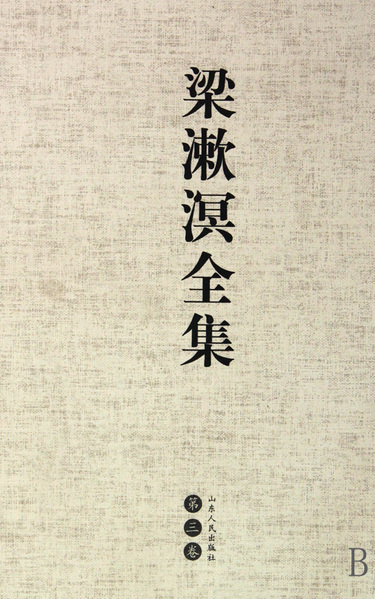 梁漱溟全集
山东人民出版社
第三卷
B